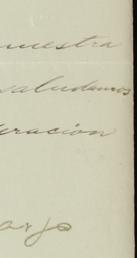 muestra
saludamos
eración
argo